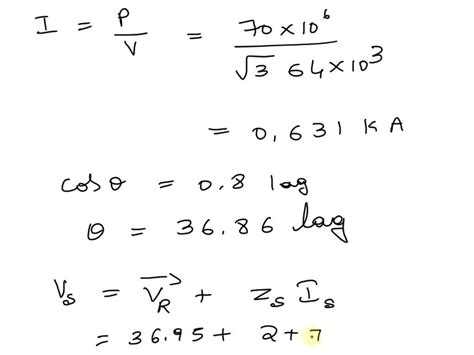 I = P/V = 70×10⁶ / √3 64×10³
= 0.631 KA
cosθ = 0.8 lag
θ = 36.86 lag
Vs = V⃗R + Zs Is
= 36.95 + 2 + 7